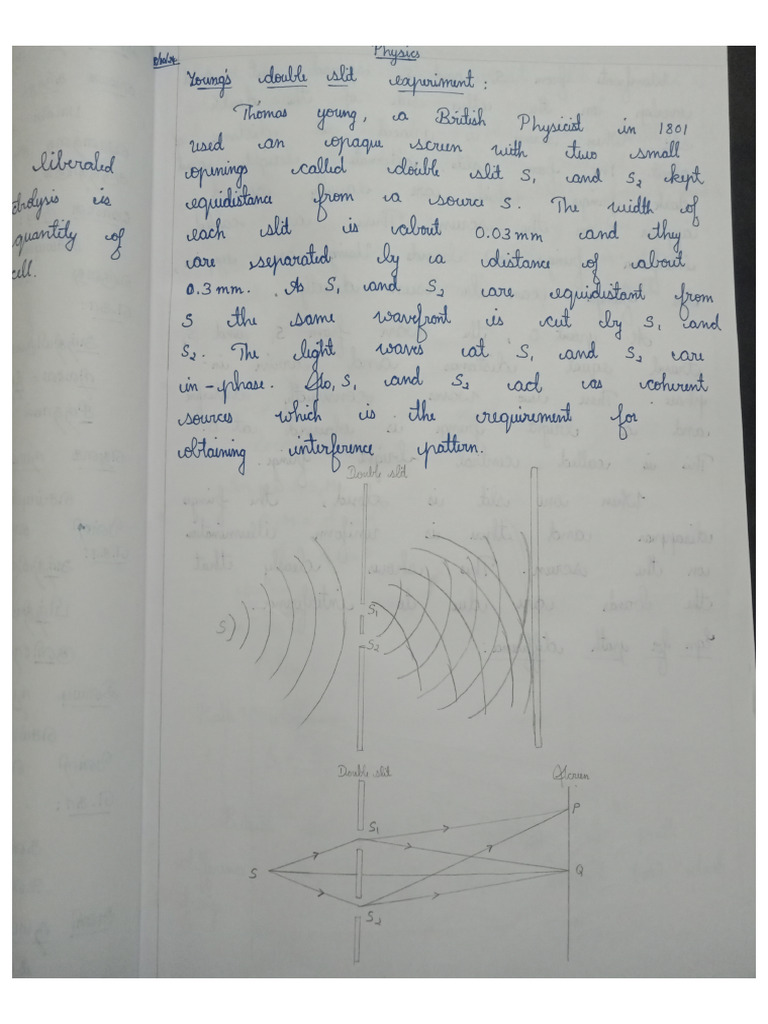 Physics
Young's double slit experiment :
Thomas young, a British Physicist in 1801
used an opaque screen with two small
openings called double slit S₁ and S₂ kept
equidistance from a source S. The width of
each slit is about 0.03 mm and they
are separated by a distance of about
0.3 mm. As S₁ and S₂ are equidistant from
S the same wavefront is cut by S₁ and
S₂. The light waves at S₁ and S₂ are
in-phase. So, S₁ and S₂ act as coherent
sources which is the requirement for
obtaining interference pattern.
liberated
is
quantity of
cell.
Double slit
S
S₁
S₂
Double slit
Screen
P
S₁
S
Q
S₂